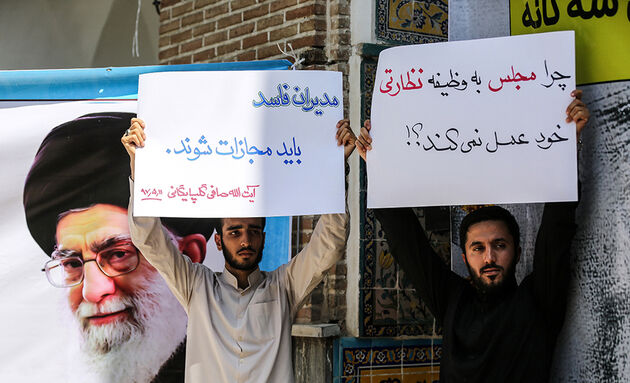 مدیران فاسد
باید مجازات شوند.
آیت الله صافی گلپایگانی
چرا مجلس به وظیفه نظارتی
خود عمل نمی کند؟!
سه گانه